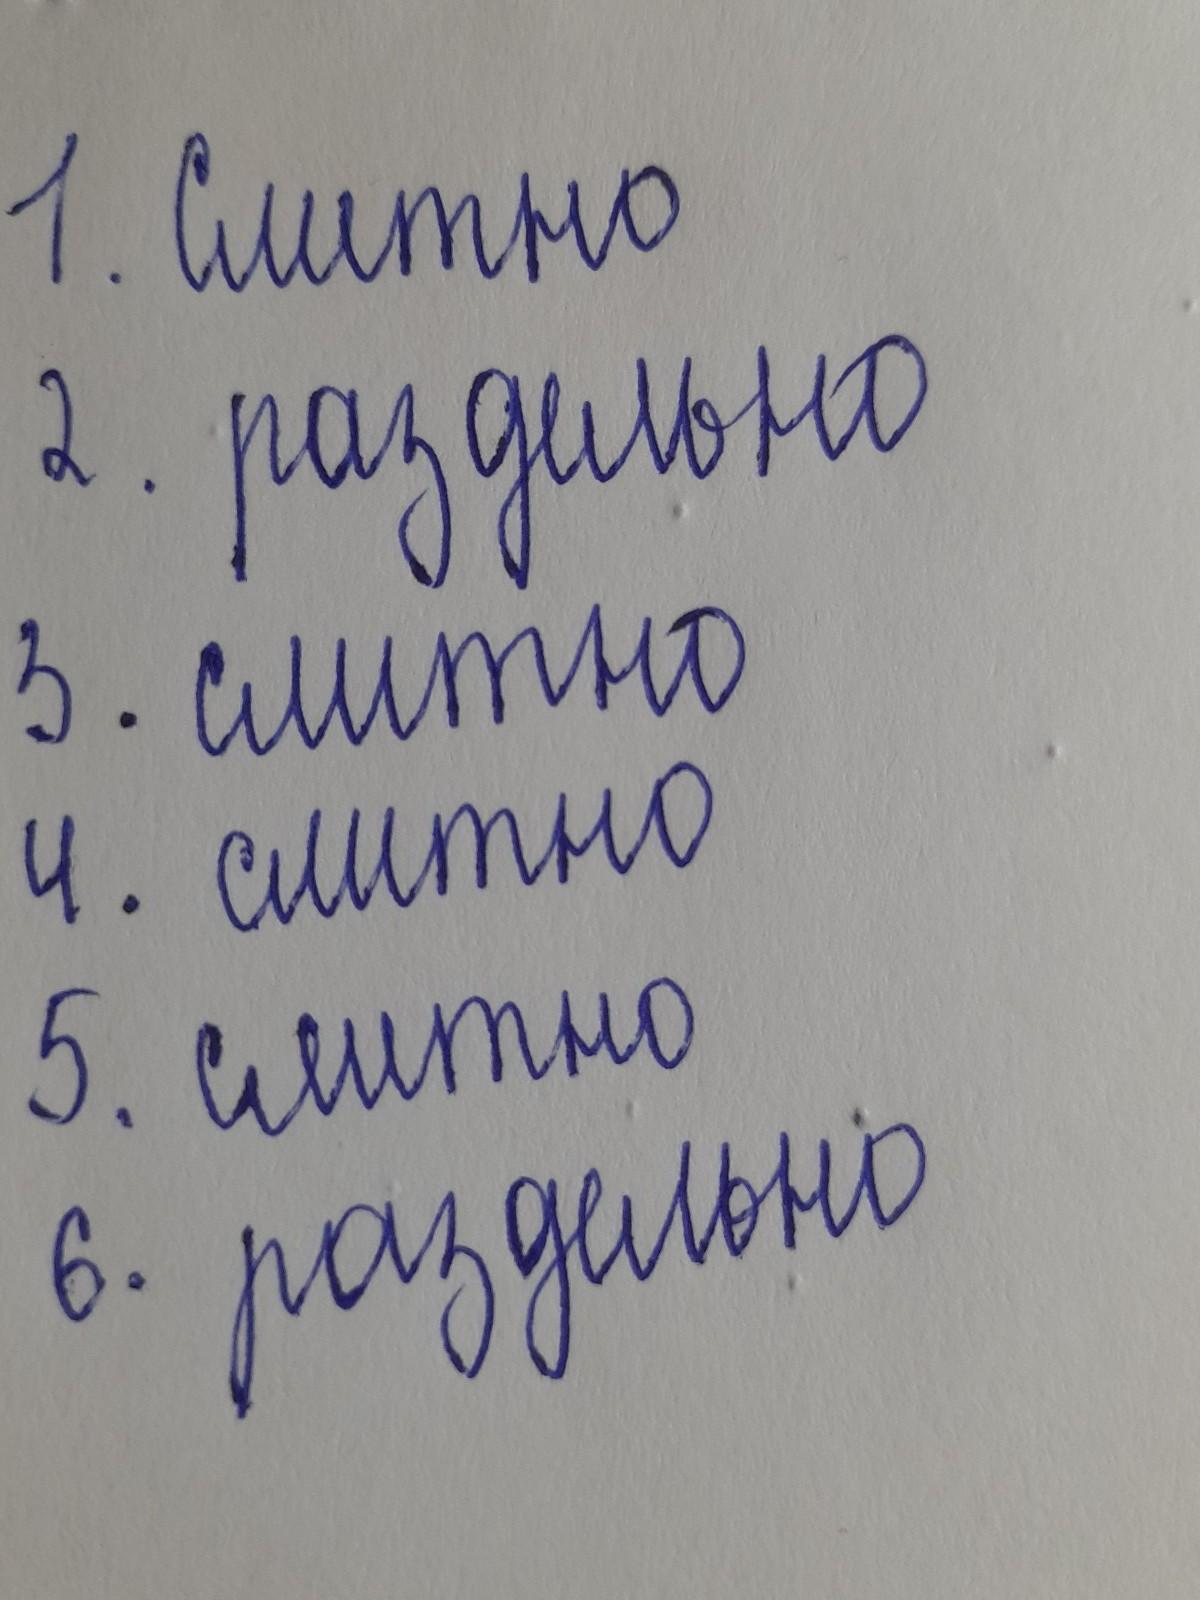 1. Слитно
2. раздельно
3. слитно
4. слитно
5. слитно
6. раздельно